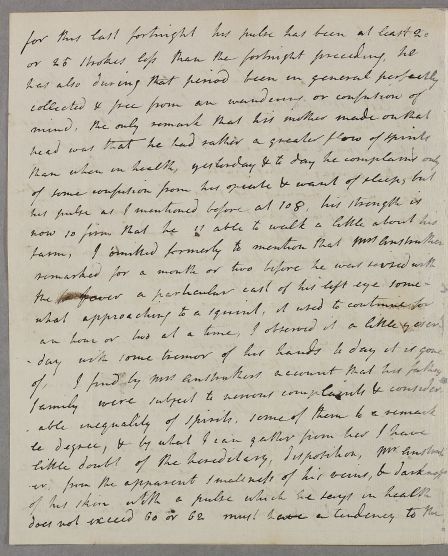 for this last fortnight his pulse has been at least 20
or 25 strokes less than the fortnight preceding, he
has also during that period been in general perfectly
collected & free from any wandering or confusion of
mind, the only remark that his mother made on that
head was that he had rather a greater flow of spirits
than when in health, yesterday & to day he complains only
of some confusion from his opiate & want of sleep, but
his pulse as I mentioned before at 108, his strength is
now so firm that he is able to walk a little about his
farm, I omitted formerly to mention that Mrs Anstruther
remarked for a month or two before he was seized with
the fever a particular cast of his left eye some-
what approaching to a squint, it used to continue for
an hour or two at a time, I observed it a little yester
day with some tremor of his hands to day it is gone
off, I find by Mrs Anstruthers account that his fathers
family were subject to nervous complaints & consider-
able inequality of spirits, some of them to a remarkab
le degree, & by what I can gather from her I have
little doubt of the hereditary disposition, Mr Anstruth
er from the apparent smallness of his veins, & darkness
of his skin with a pulse which he says in health
does not exceed 60 or 62 must have a tendency to the